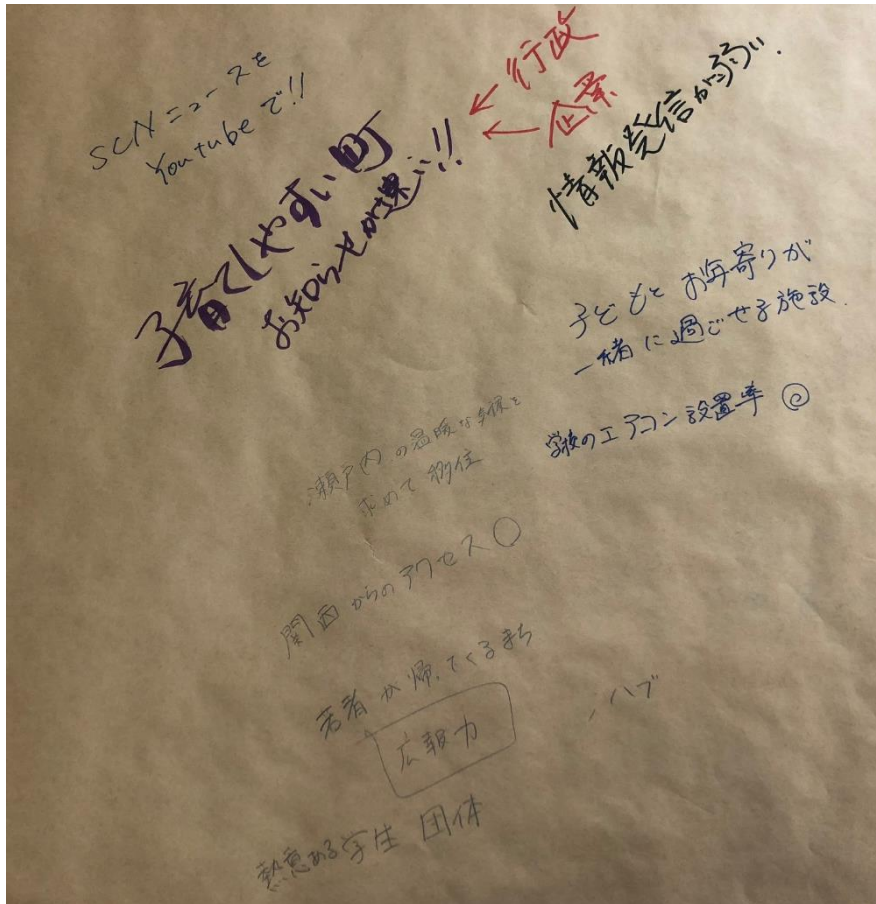 SCNニュースを
Youtubeで!!
子育てしやすい町
お知らせが速い!!
← 行政
← 企業
情報発信が弱い.
子どもと お年寄りが
一緒に過ごせる施設.
学校のエアコン設置率 ◎
瀬戸内の温暖な気候を
求めて移住
関西からのアクセス ○
若者が帰ってくるまち
広報力
・ハブ
熱意ある学生 団体